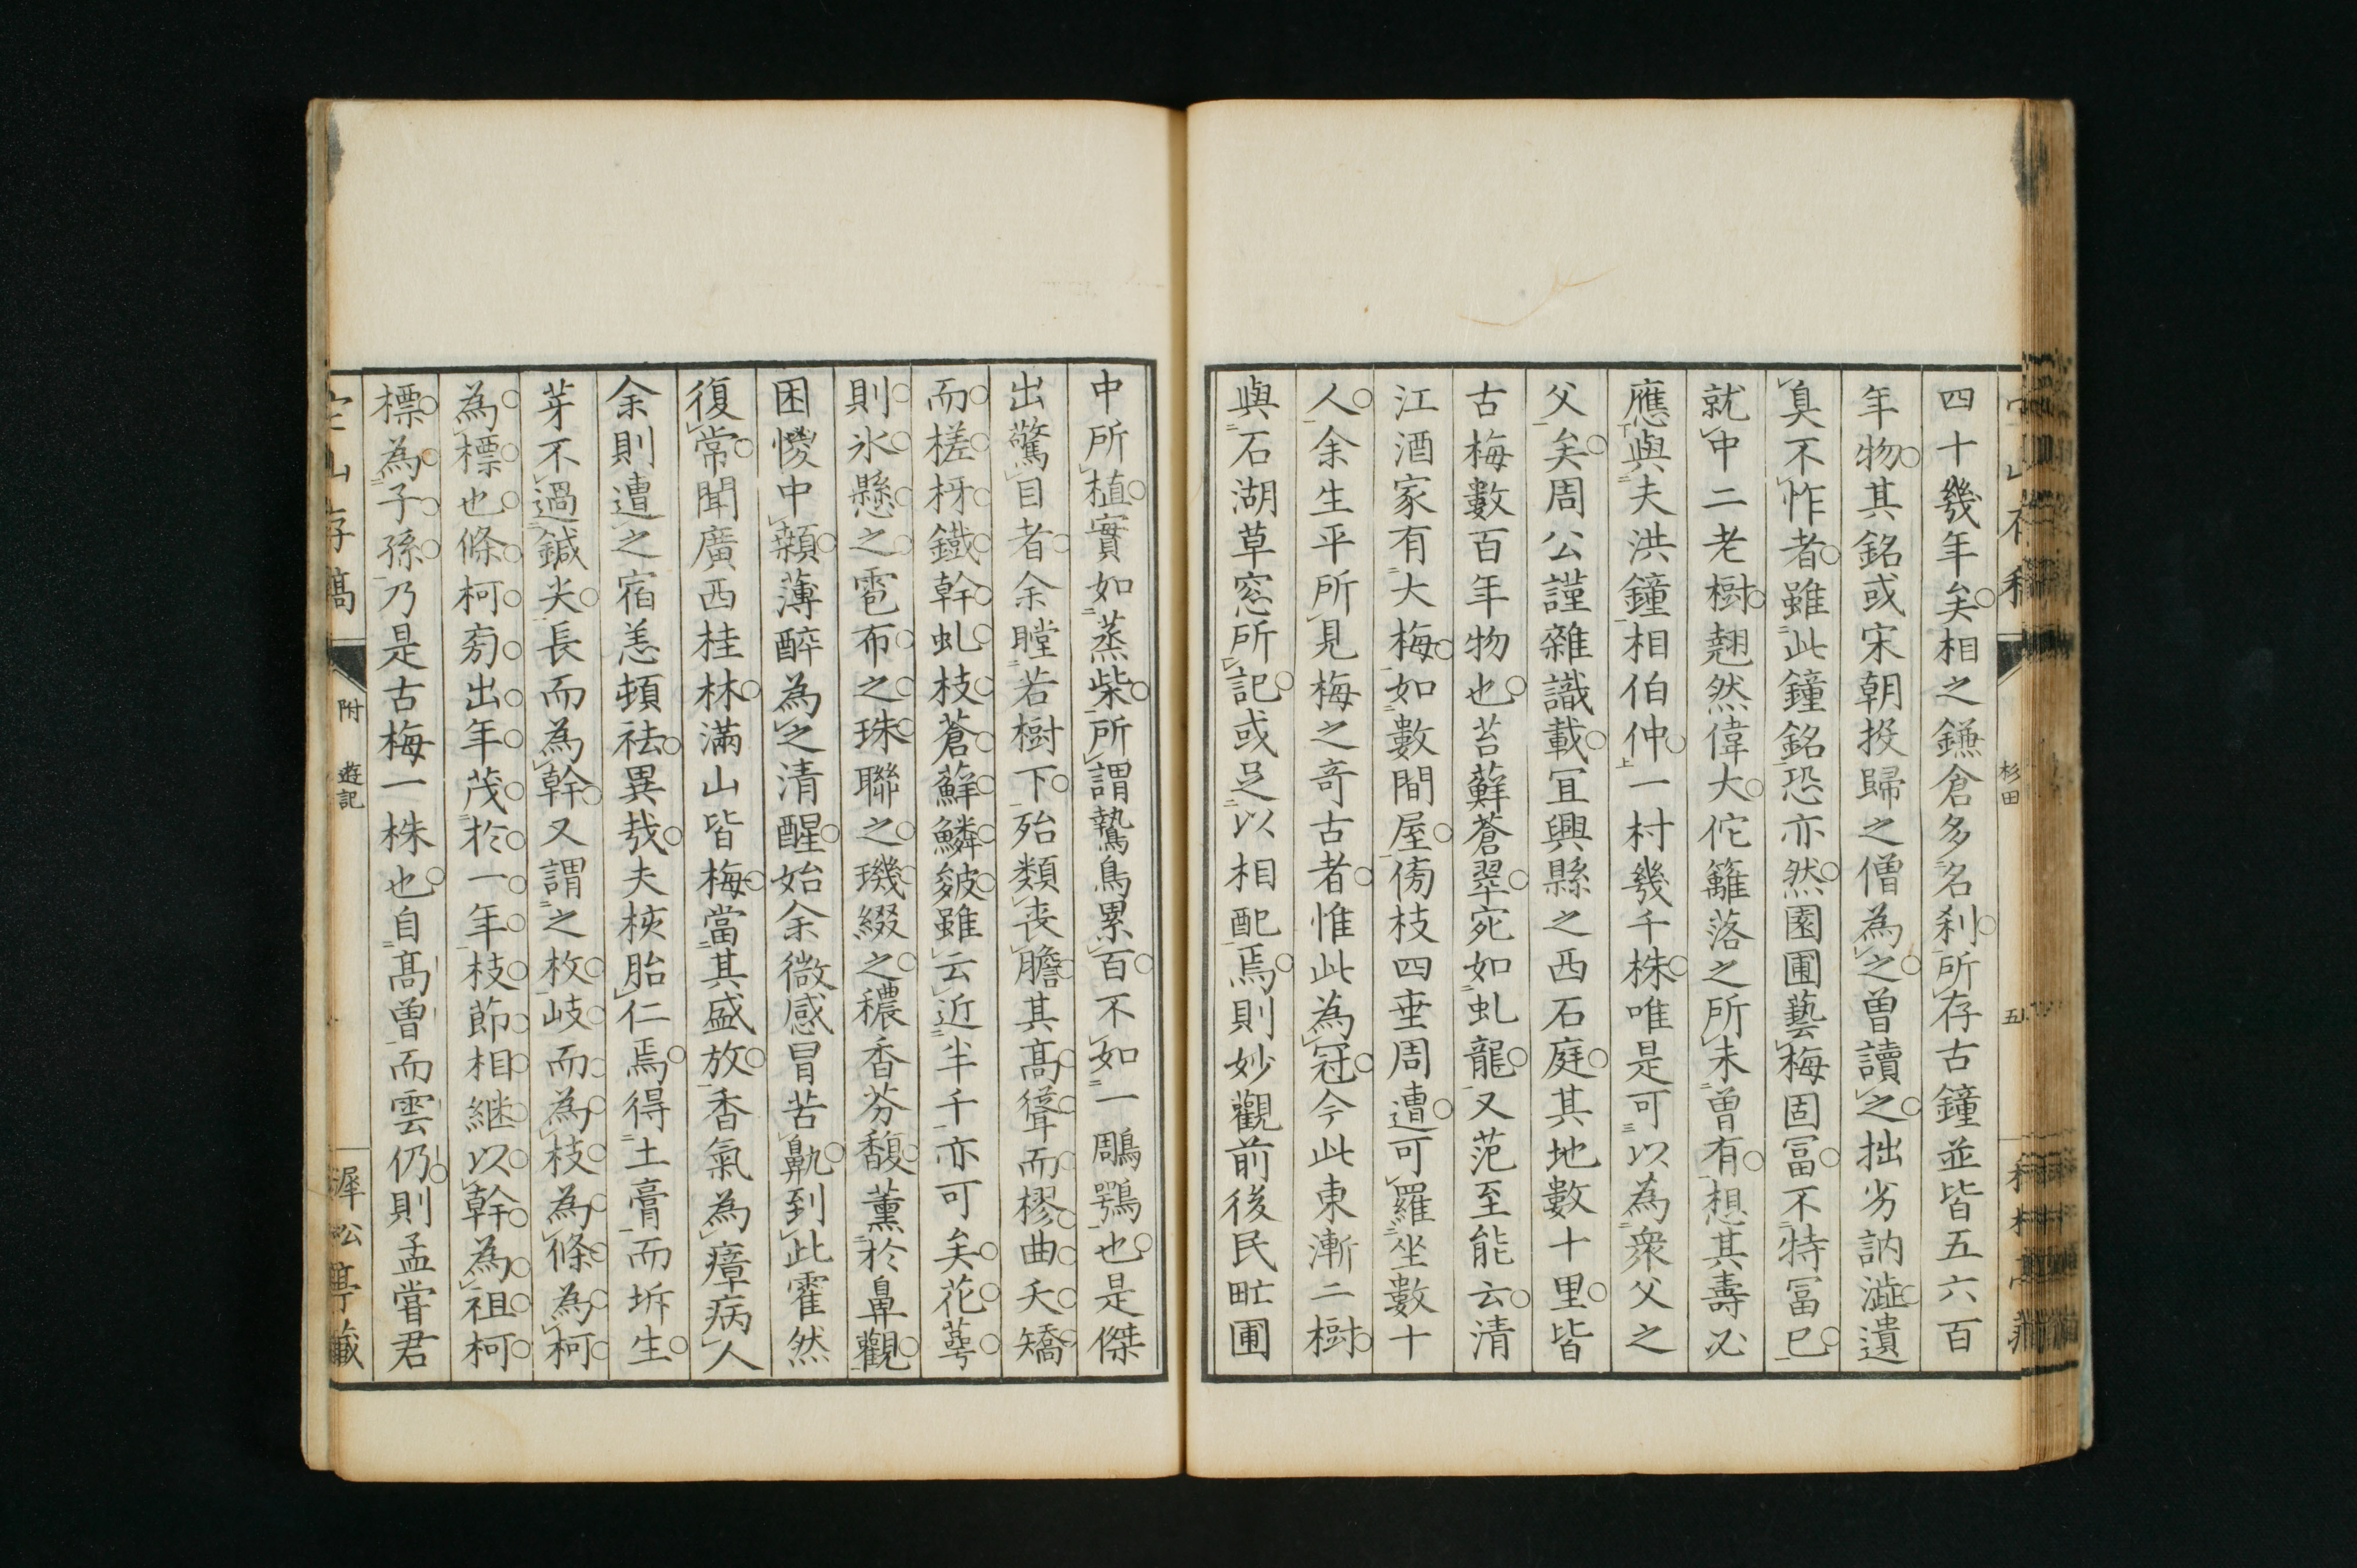 四十幾年矣相之鐮倉多名刹所存古鐘並皆五六百
年物其銘或宋朝投歸之僧為之曽讀之拙劣訥澁遺
臭不怍者雖此鐘銘恐亦然園圃藝梅固冨不特冨已
就中二老樹翹然偉大佗籬落之所未曽有想其壽必
應與夫洪鐘相伯仲一村幾千株唯是可以為衆父之
父矣周公謹雜識載冝興縣之西石庭其地數十里皆
古梅數百年物也苔蘚蒼翠宛如虬龍又范至能云清
江酒家有大梅如數間屋傍枝四垂周遭可羅坐數十
人余生平所見梅之奇古者惟此為冠今此東漸二樹
與石湖草窓所記或足以相配焉則妙觀前後民甿圃
杉田
五
中所植實如蒸柴所謂鷙鳥累百不如一鵰鶚也是傑
出驚目者余瞠若樹下殆類喪膽其高聳而樛曲夭矯
而槎枒鐵幹虬枝蒼蘚鱗皴雖云近半千亦可矣花蕚
則氷懸之雹布之珠聯之璣綴之穠香芬馥薰於鼻觀
困懓中顙薄醉為之清醒始余微感冒苦鼽到此霍然
復常聞廣西桂林滿山皆梅當其盛放香氣為瘴病人
余則遭之宿恙頓祛異哉夫核胎仁焉得土膏而坼生
芽不過鍼尖長而為幹又謂之枚岐而為枝為條為柯
為標也條柯旁出年茂於一年枝節相継以幹為祖柯
標為子孫乃是古梅一株也自高曽而雲仍則孟甞君
山存稿
附
遊記
墀松亭藏